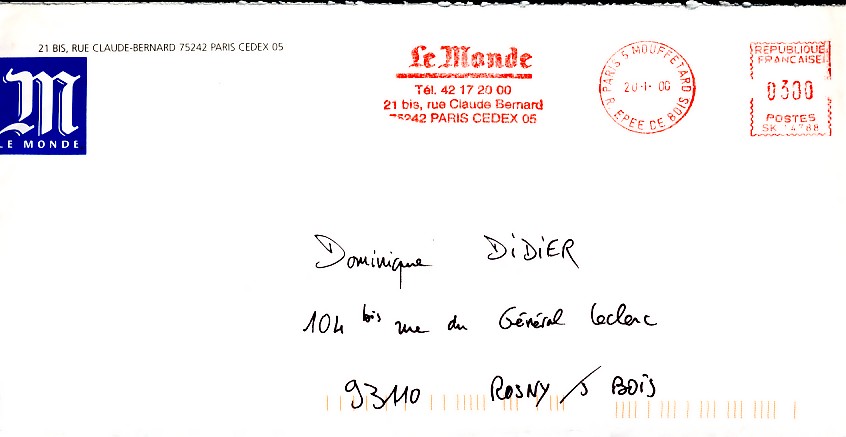 21 BIS, RUE CLAUDE-BERNARD 75242 PARIS CEDEX 05
M
LE MONDE
Le Monde
Tél. 42 17 20 00
21 bis, rue Claude Bernard
75242 PARIS CEDEX 05
PARIS 5 MOUFFETARD
20-1-00
R. EPEE DE BOIS
REPUBLIQUE
FRANCAISE
0300
POSTES
SK 14788
Dominique DIDIER
104 bis rue du Général Leclerc
93110 ROSNY /S BOIS